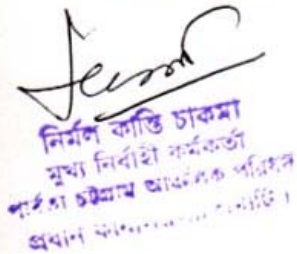 নির্মল কান্তি চাকমা
মুখ্য নির্বাহী কর্মকর্তা
পার্বত্য চট্টগ্রাম আঞ্চলিক পরিষদ
প্রধান